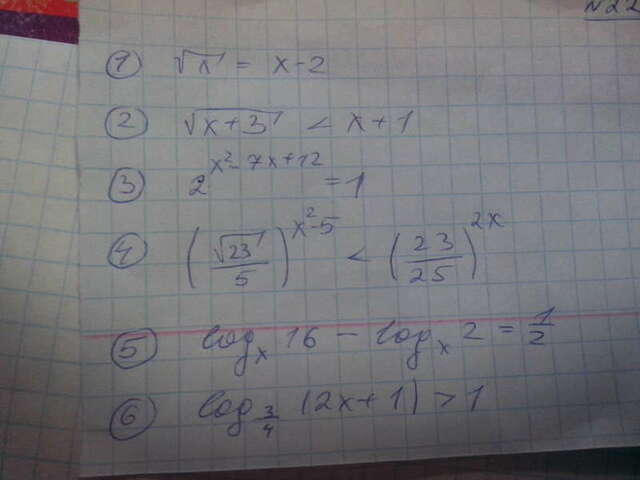 N22
① √x = x-2
② √(x+3) < x+1
③ 2^(x²-7x+12) = 1
④ (√23/5)^(x²-5) < (23/25)^(2x)
⑤ log_x 16 - log_x 2 = 1/2
⑥ log_(3/4) (2x+1) > 1